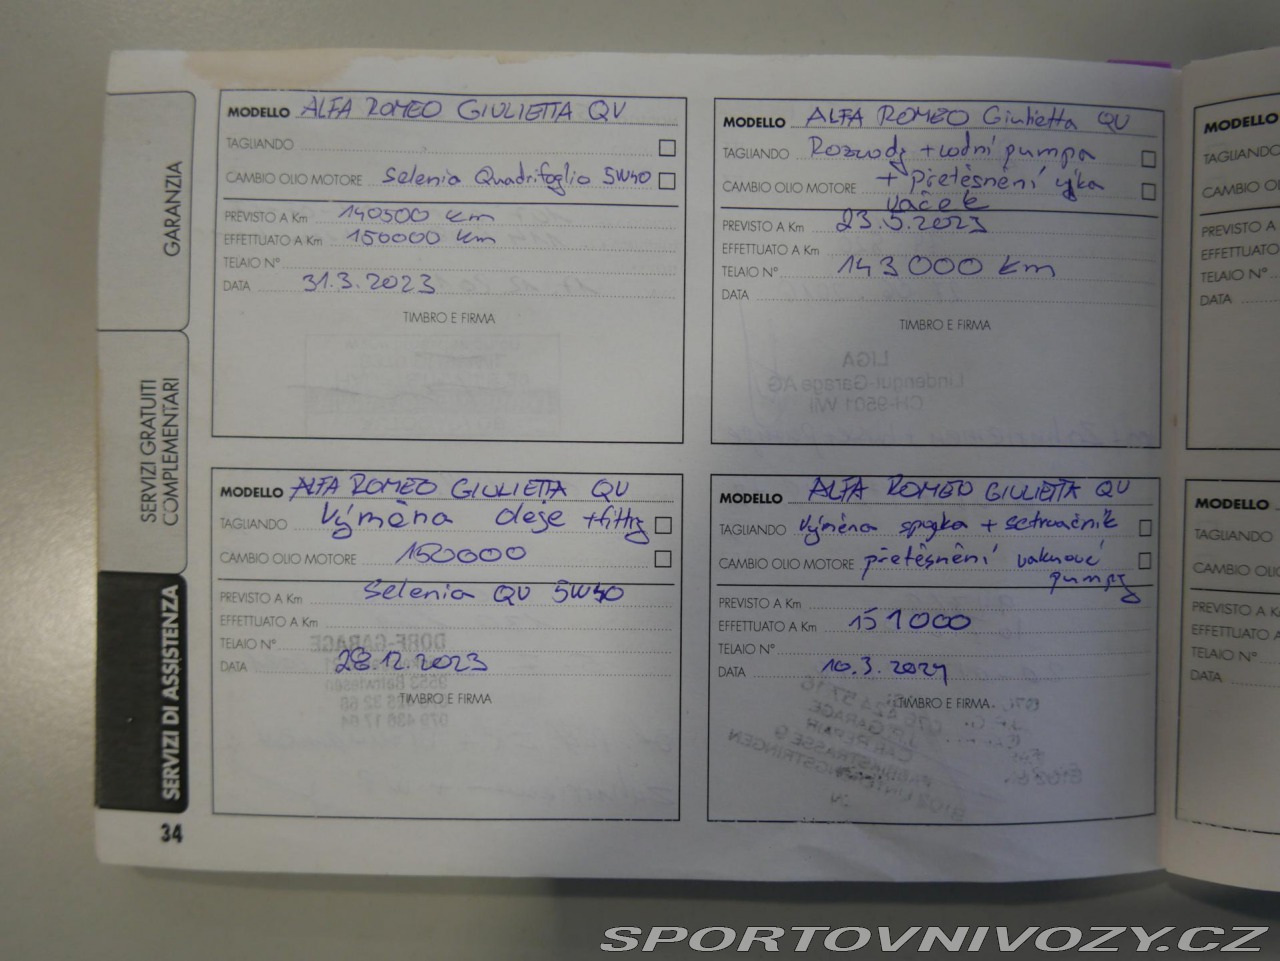 GARANZIA
SERVIZI GRATUITI
COMPLEMENTARI
SERVIZI DI ASSISTENZA
34
MODELLO ALFA ROMEO GIULIETTA QV
TAGLIANDO
CAMBIO OLIO MOTORE Selenia Quadrifoglio 5W40
PREVISTO A Km 140500 km
EFFETTUATO A Km 150000 km
TELAIO N°
DATA 31.3.2023
TIMBRO E FIRMA
MODELLO ALFA ROMEO Giulietta QV
TAGLIANDO Rozvody + vodní pumpa
CAMBIO OLIO MOTORE + přetěsnění víka
vaček
PREVISTO A Km 23.5.2023
EFFETTUATO A Km
TELAIO N° 143000 km
DATA
TIMBRO E FIRMA
MODELLO ALFA ROMEO GIULIETTA QV
TAGLIANDO Výměna oleje + filtry
CAMBIO OLIO MOTORE 150000
Selenia QV 5W40
PREVISTO A Km
EFFETTUATO A Km
TELAIO N°
DATA 28.12.2023
TIMBRO E FIRMA
MODELLO ALFA ROMEO GIULIETTA QV
TAGLIANDO Výměna spojka + setrvačník
CAMBIO OLIO MOTORE přetěsnění vakuové
pumpy
PREVISTO A Km
EFFETTUATO A Km 151000
TELAIO N°
DATA 10.3.2024
TIMBRO E FIRMA
MODELLO
TAGLIANDO
CAMBIO OLI
PREVISTO A
EFFETTUATO
TELAIO N°
DATA
MODELLO
TAGLIANDO
CAMBIO OLIO
PREVISTO A K
EFFETTUATO A
TELAIO N°
DATA
SPORTOVNIVOZY.CZ